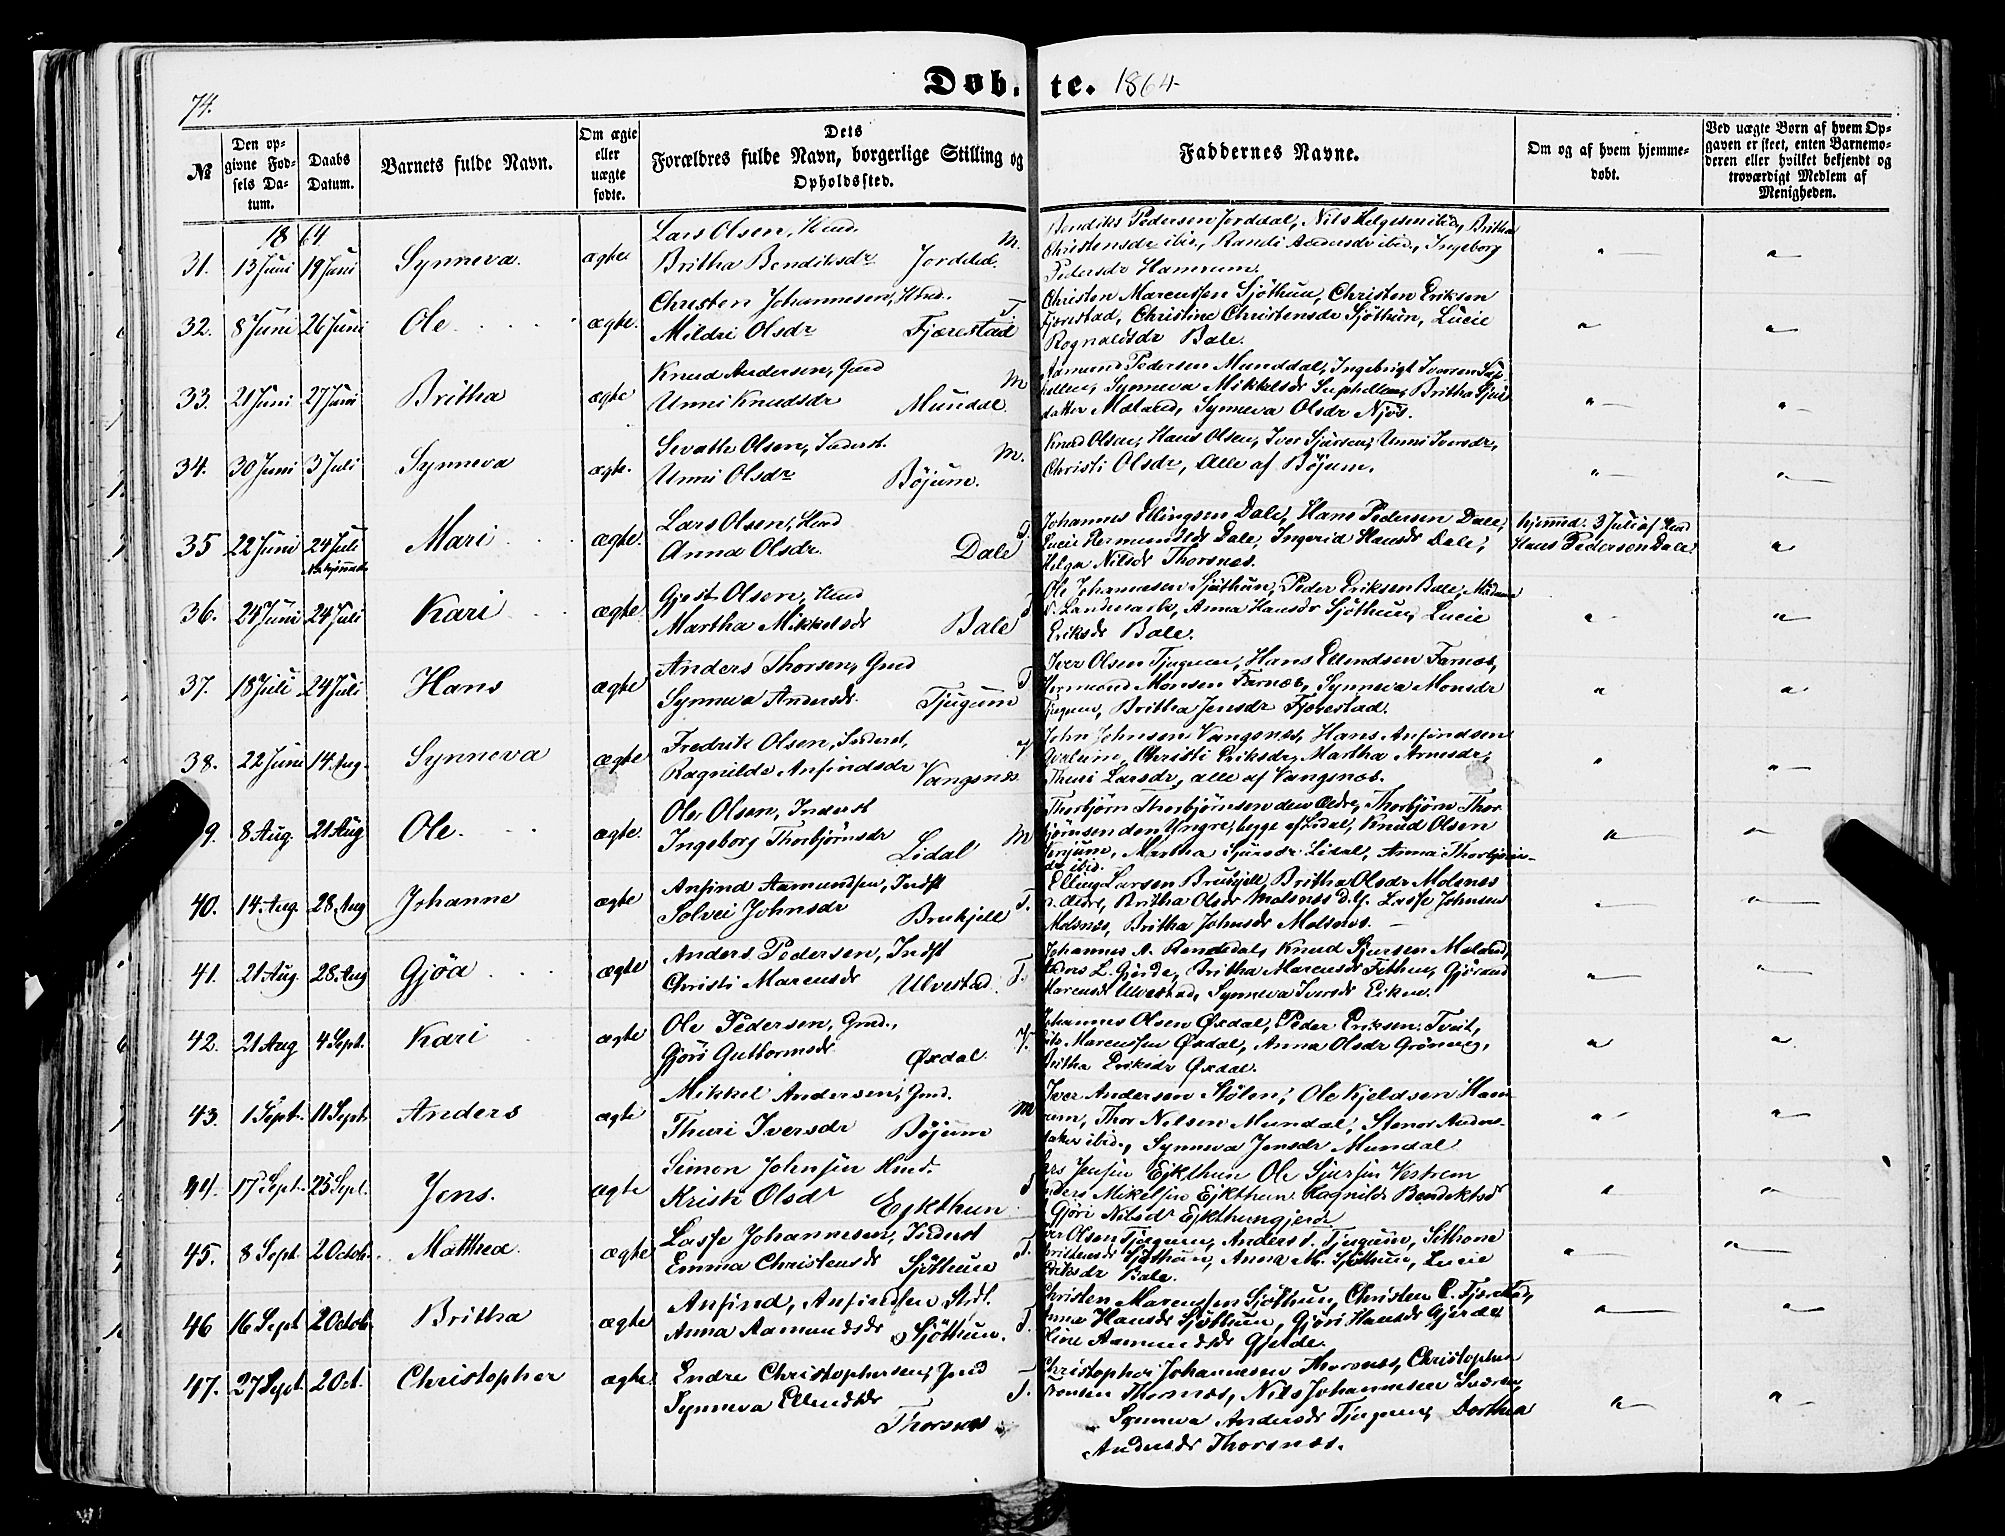 74.
Døbte. 1864
№
Den opgivne Fødsels Datum.
Daabs Datum.
Barnets fulde Navn.
Om ægte eller uægte fødte.
Dets Forældres fulde Navn, borgerlige Stilling og Opholdssted.
Faddernes Navne.
Om og af hvem hjemmedøbt.
Ved uægte Børn af hvem Opgaven er skeet, enten Barnemoderen eller hvilket bekjendt og troværdigt Medlem af Menigheden.
1864
31. 13 Juni 19 Juni Synneva. ægte
Lars Olsen, Hmd.
Britha Bendiksdr Jordal. M.
Bendiks Pedersen Jordal, Nils Helgesen ibid, Britha
Christensdr ibid., Randi Andersdr ibid., Ingeborg
Pedersdr Hamrum.
32. 8 Juni 26 Juni Ole ægte.
Christen Johannesen, Hmd.
Mildri Olsdr Fjærestad T.
Christen Marcussen Sjøthun, Christen Eriksen
Fjærestad, Christine Christensdr Sjøthun, Lucie
Rognaldsdr Bale.
33. 21 Juni 27 Juni Britha ægte
Knud Andersen, Gmd
Unni Knudsdr Mundal M
Aamund Pedersen Munddal, Ingebrigt Iversen Sup
hellen, Synneva Mikkelsdr Suphellen, Britha Sjurs
datter Mæland, Synneva Olsdr Njøs.
34. 30 Juni 3 Juli Synneva ægte.
Sevath Olsen, Inderst.
Unni Olsdr Bøjum. M.
Knud Olsen, Hans Olsen, Iver Sjursen, Unni Iversdr,
Christi Olsdr, Alle af Bøjum.
35 22 Juni 24 Juli Mari ægte.
Lars Olsen, Hmd
Anna Olsdr. Dale T
Johannes Ellingsen Dale, Hans Pedersen Dale,
Lucie Hermundsdr Dale, Ingerid Hansdr Dale,
Helga Nilsdr Thorsnæs.
hjemmed. 3 Juli af Hmd
Hans Pedersen Dale.
36. 24 Juni 24 Juli Kari ægte
Gjest Olsen, Hmd
Martha Mikkelsdr Bale T
Ole Johannesen Sjøthun, Peder Eriksen Bale, Madame
Landmark, Anna Hansdr Sjøthun, Lucie
Eriksdr Bale.
37. 18 Juli 24 Juli Hans ægte
Anders Thorsen, Gmd
Synneva Andersdr. Tjugum T
Iver Olsen Tjugum, Hans Ellendsen Farnæs,
Hermund Monsen Farnæs, Synneva Monsdr
Tjugum, Britha Jensdr Fjærestad.
38. 22 Juni 14. Aug. Synneva ægte
Fredrik Olsen, Inderst,
Ragnilde Anfindsdr Vangsnæs
John Johnsen Vangsnæs, Hans Anfindsen
Christi Eriksdr, Martha Arnesdr,
Thuri Larsdr, alle af Vangsnæs.
9. 8 Aug. 21 Aug Ole. ægte.
Ole Olsen, Inderst
Ingeborg Thorbjørnsdr Lidal M
Thorbjørn Thorbjørnsen den Ældre, Thorbjørn Thor
bjørnsen den Yngre, begge af Lidal, Knud Olsen
Martha Sjursdr Lidal, Anna Thorbjørns-
dr ibid.
40. 14. Aug. 28 Aug Johanne ægte
Anfind Aamundsen, Indst
Solvei Johnsdr Brekjell T.
Elling Larsen Britha Olsdr Molsnes
d. Ældre, Britha Olsdr Molsnes d. Y. Lasse Johnsen
Molsnes, Britha Johnsdr Molsnes.
41. 21 Aug. 28 Aug Gjøa ægte
Anders Pedersen, Indst
Christi Marcusdr Ulvestad T.
Johannes A. Knud Sjursen Mæland,
Anders L. Gjerde, Britha Marcusdr Fethun, Gjørand
Marcusdr Ulvestad, Synneva Iversdr Eikum.
42. 21 Aug 4 Sept. Kari ægte
Ole Pedersen, Gmd.,
Gjøri Guttormsdr Øxdal.
Johannes Olsen Øxdal, Peder Eriksen Tveit,
Nils Marcussen Øxdal, Anna Olsdr Grønneng,
Britha Eriksdr Øxdal.
43. 1 Sept. 11 Sept. Anders ægte
Mikkel Andersen, Gmd.
Thuri Iversdr Bøjum M
Iver Andersen Stølen, Ole Kjeldsen Ham
rum, Thor Nilsen Mundal, Stenor Anders-
datter ibid., Synneva Jensdr Mundal
44. 17 Sept. 25 Sept. Jens. ægte
Simon Johnsen Hmd.
Kristi Olsdr Ejkthun
Lars Jensen Ejkthun Ole Sjursen Vestrem
Anders Mikelsen Ejkthun Ragnilde Bendiktsdr
Gjøri Nilsdr Ejkthungjerde
45. 8 Sept. 2 Octob. Matthea ægte
Lasse Johannesen, Inderst
Emma Christensdr Sjøthun T.
Iver Olsen Tjugum, Anders T. Tjugum,
Christensdr Sjøthun, Anna M. Sjøthun, Lucie
Eriksdr Bale.
46 16 Sept 2 Octob. Britha ægte
Anfind, Anfindsen
Anna Aamundsdr Sjøthun. T.
Christen Marcussen Sjøthun, Christen C. Fjærestad,
Anna Hansdr Sjøthun, Gjøri Hansdr Gjerde
Oline Aamundsdr Gjelde.
47. 27 Sept 2 Oct. Christopher ægte.
Endre Christophersen, Gmd
Synneva Ellendsdr T.
Thorsnæs
Christopher Johannesen Thorsnæs, Christopher
Thorsnæs, Nils Johannesen
Synneva Andersdr Tjugum, Dorthea
Andersdr Thorsnæs.